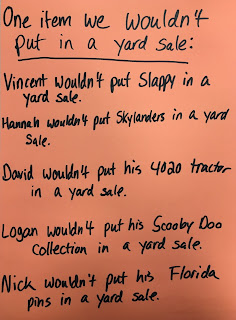 One item we wouldn't
put in a yard sale:
Vincent wouldn't put Slappy in a
yard sale.
Hannah wouldn't put Skylanders in a yard
Sale.
David wouldn't put his 4020 tractor
in a yard sale.
Logan wouldn't put his Scooby Doo
Collection in a yard sale.
Nick wouldn't put his Florida
pins in a yard sale.